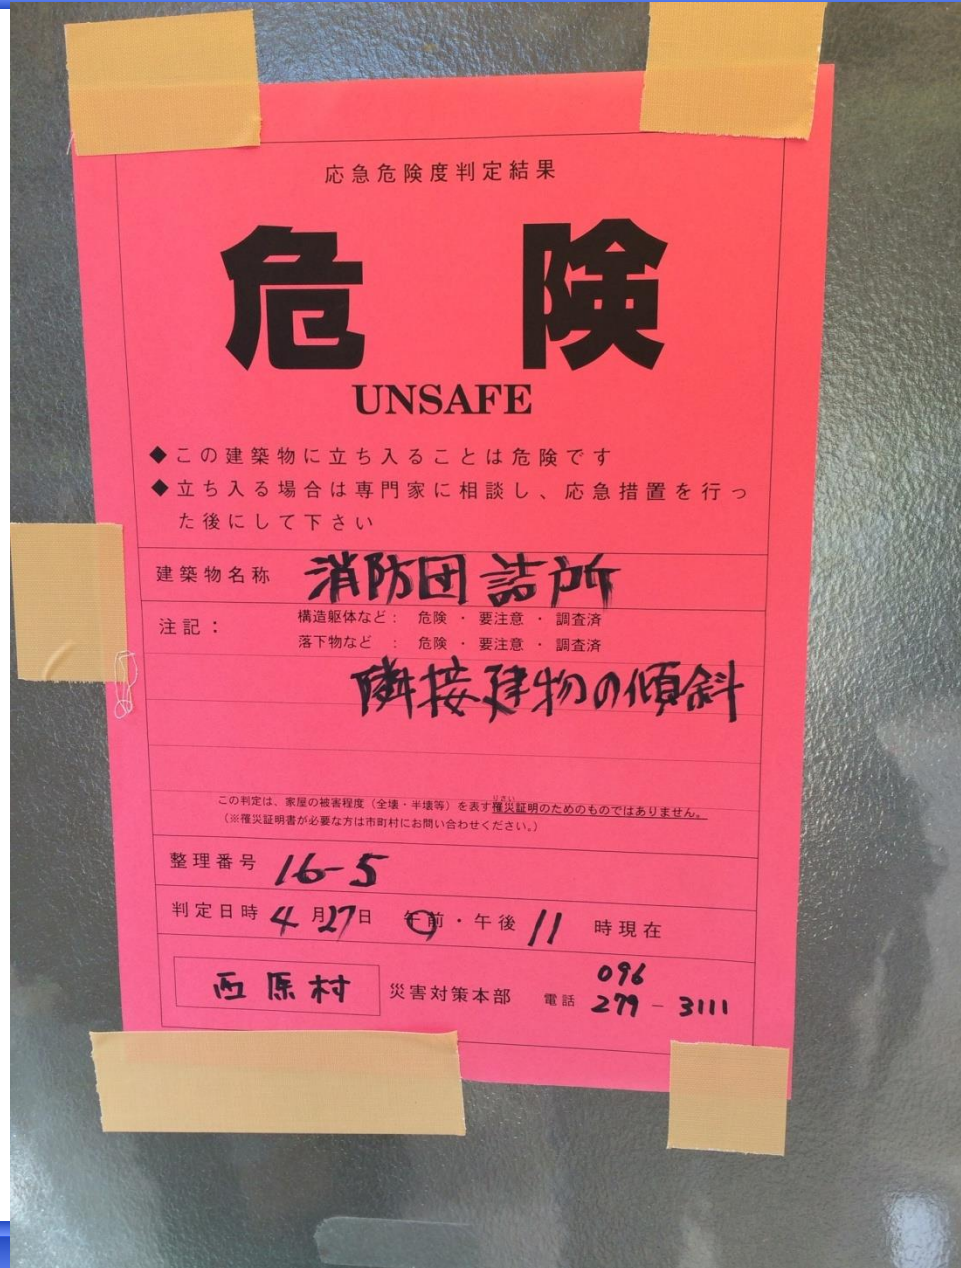 応急危険度判定結果
危険
UNSAFE
◆この建築物に立ち入ることは危険です
◆立ち入る場合は専門家に相談し、応急措置を行っ
た後にして下さい
建築物名称 消防団詰所
注記： 構造躯体など： 危険 ・ 要注意 ・ 調査済
落下物など ： 危険 ・ 要注意 ・ 調査済
隣接建物の傾斜
りさい
この判定は、家屋の被害程度（全壊・半壊等）を表す罹災証明のためのものではありません。
（※罹災証明書が必要な方は市町村にお問い合わせください。）
整理番号 16-5
判定日時 4月27日 午前・午後 11 時現在
096
西原村 災害対策本部 電話 279-3111